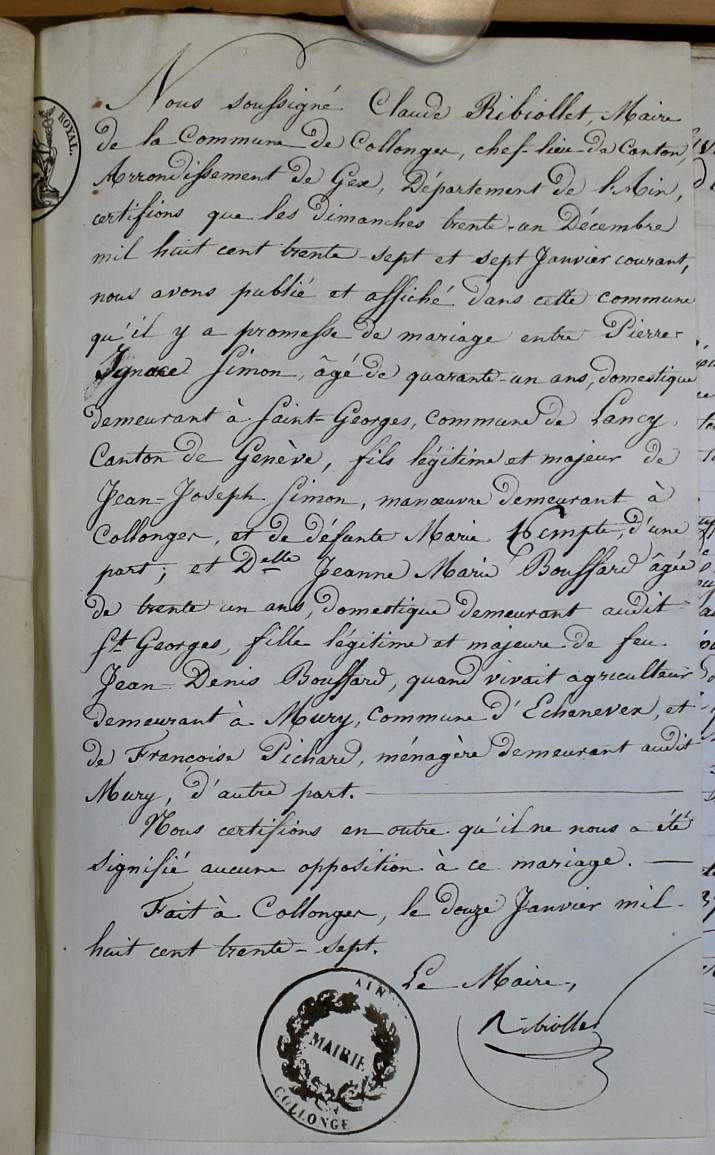 ROYAL.
Nous soussigné Claude Ribiollet, Maire
de la Commune de Collonges, chef-lieu de Canton,
Arrondissement de Gex, Département de l'Ain,
certifions que les dimanches trente-un Décembre
mil huit cent trente-sept et sept Janvier courant,
nous avons publié et affiché dans cette commune
qu'il y a promesse de mariage entre Pierre-
Ignace Simon, âgé de quarante-un ans, domestique
demeurant à Saint-Georges, commune de Lancy,
Canton de Genève, fils légitime et majeur de
Jean-Joseph Simon, manœuvre demeurant à
Collonges, et de défunte Marie d'une
part; et Delle Jeanne Marie Bouffard âgée
de trente un ans, domestique demeurant audit
St Georges, fille légitime et majeure de feu
Jean-Denis Bouffard, quand vivait agriculteur
demeurant à Mury, commune d'Echenevex, et
de Françoise Pichard, ménagère demeurant audit
Mury, d'autre part.
Nous certifions en outre qu'il ne nous a été
signifié aucune opposition à ce mariage.
Fait à Collonges, le douze Janvier mil-
huit cent trente-sept.
Le Maire,
Ribiollet
AIN
MAIRIE
COLLONGE